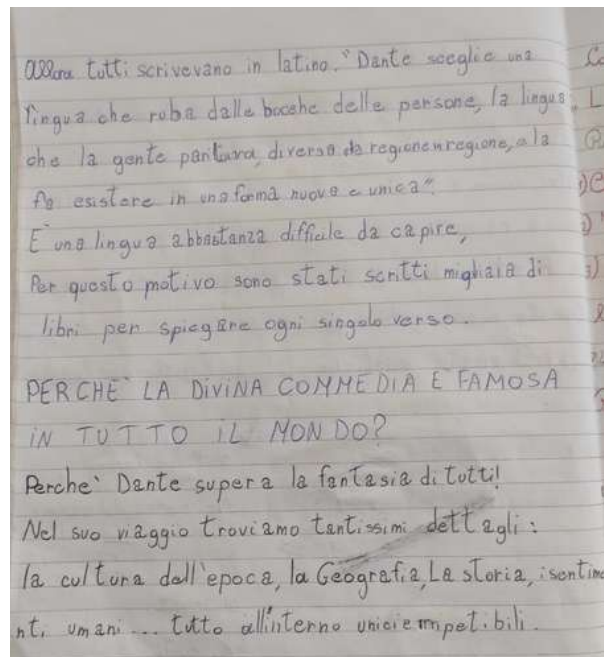 allora tutti scrivevano in latino. "Dante sceglie una
lingua che ruba dalle bocche delle persone, la lingua
che la gente parlava, diversa da regione in regione, e la
fa esistere in una forma nuova e unica".
E' una lingua abbastanza difficile da capire,
Per questo motivo sono stati scritti migliaia di
libri per spiegare ogni singolo verso.
PERCHE' LA DIVINA COMMEDIA E' FAMOSA
IN TUTTO IL MONDO?
Perche' Dante supera la fantasia di tutti!
Nel suo viaggio troviamo tantissimi dettagli:
la cultura dell'epoca, la Geografia, La storia, i sentime
nti umani... tutto all'interno